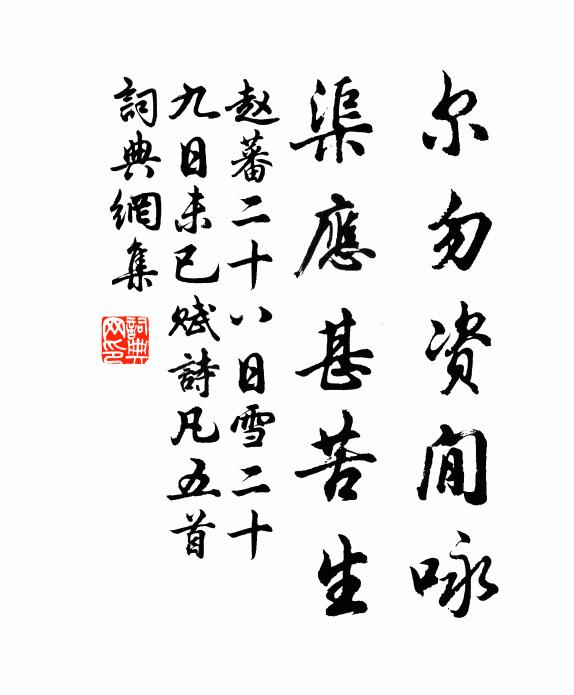 尔勿资闲咏
渠應甚苦生
赵蕃二十八日雪二十
九日未已赋詩凡五首
詞典網集
詞典网印